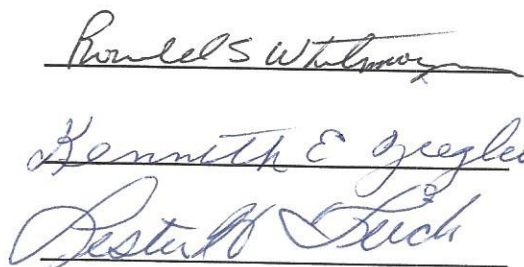 Ronald S Whitmoyer
Kenneth E Ziegler
Lester H